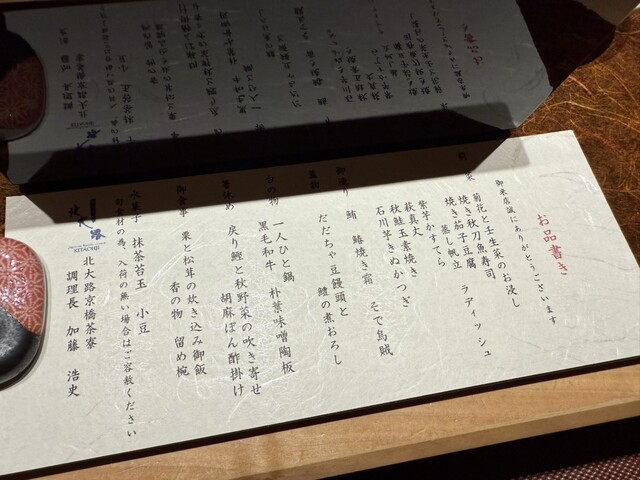 お品書き
御来店誠にありがとうございます
前菜 菊花と壬生菜のお浸し
焼き秋刀魚寿司
焼き茄子豆腐 ラディッシュ
蒸し帆立
紫芋かすてら
萩真丈
秋鮭玉素焼き
石川芋きぬかつぎ
御造り 鮪 鰆焼き霜 そで烏賊
蓋物 だだちゃ豆饅頭と
鱧の煮おろし
台の物 一人ひと鍋
黒毛和牛 朴葉味噌陶板
箸休め 戻り鰹と秋野菜の吹き寄せ
胡麻ぽん酢掛け
御食事 栗と松茸の炊き込み御飯
香の物 留め椀
水菓子 抹茶苔玉 小豆
旬食材の為、入荷の無い場合はご容赦ください
KITAOHJI
北大路京橋茶寮
調理長 加藤 浩史